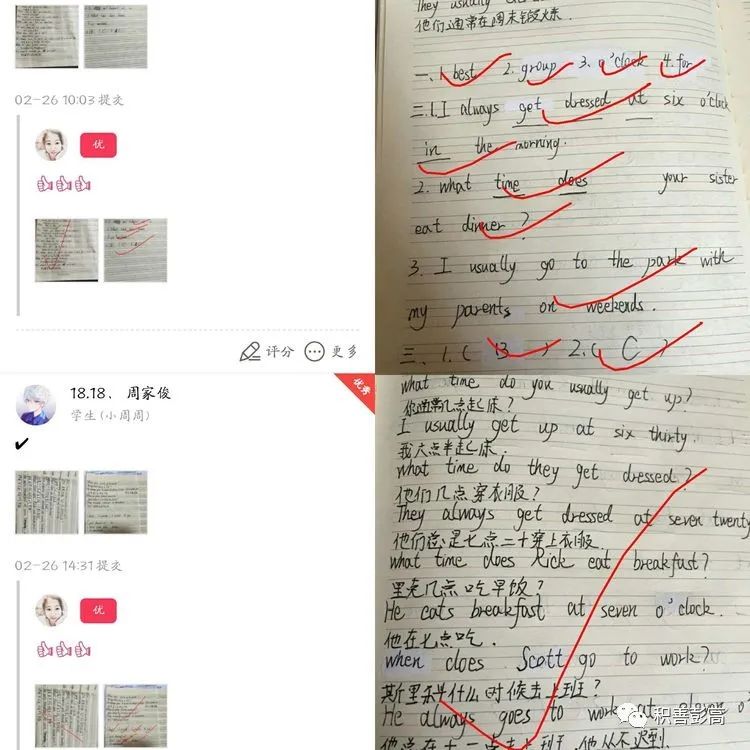 02-26 10:03 提交
优
评分
更多
18.18、周家俊
学生(小周周)
优秀
02-26 14:31 提交
优
They usually
他们通常在周末锻炼.
一、1. best 2. group 3. o'clock 4. for
二.1. I always get dressed at six o'clock
in the morning.
2. what time does your sister
eat dinner?
3. I usually go to the park with
my parents on weekends.
三、1.( B ) 2.( C )
what time do you usually get up?
你通常几点起床?
I usually get up at six thirty.
我六点半起床.
what time do they get dressed?
他们几点穿衣服?
They always get dressed at seven twenty
他们总是七点二十穿上衣服.
what time does Rick eat breakfast?
里克几点吃早饭?
He eats breakfast at seven o'clock.
他在七点吃.
when does Scott go to work?
斯科特什么时候去上班?
He always goes to work at eleven o'
积善彭嵩